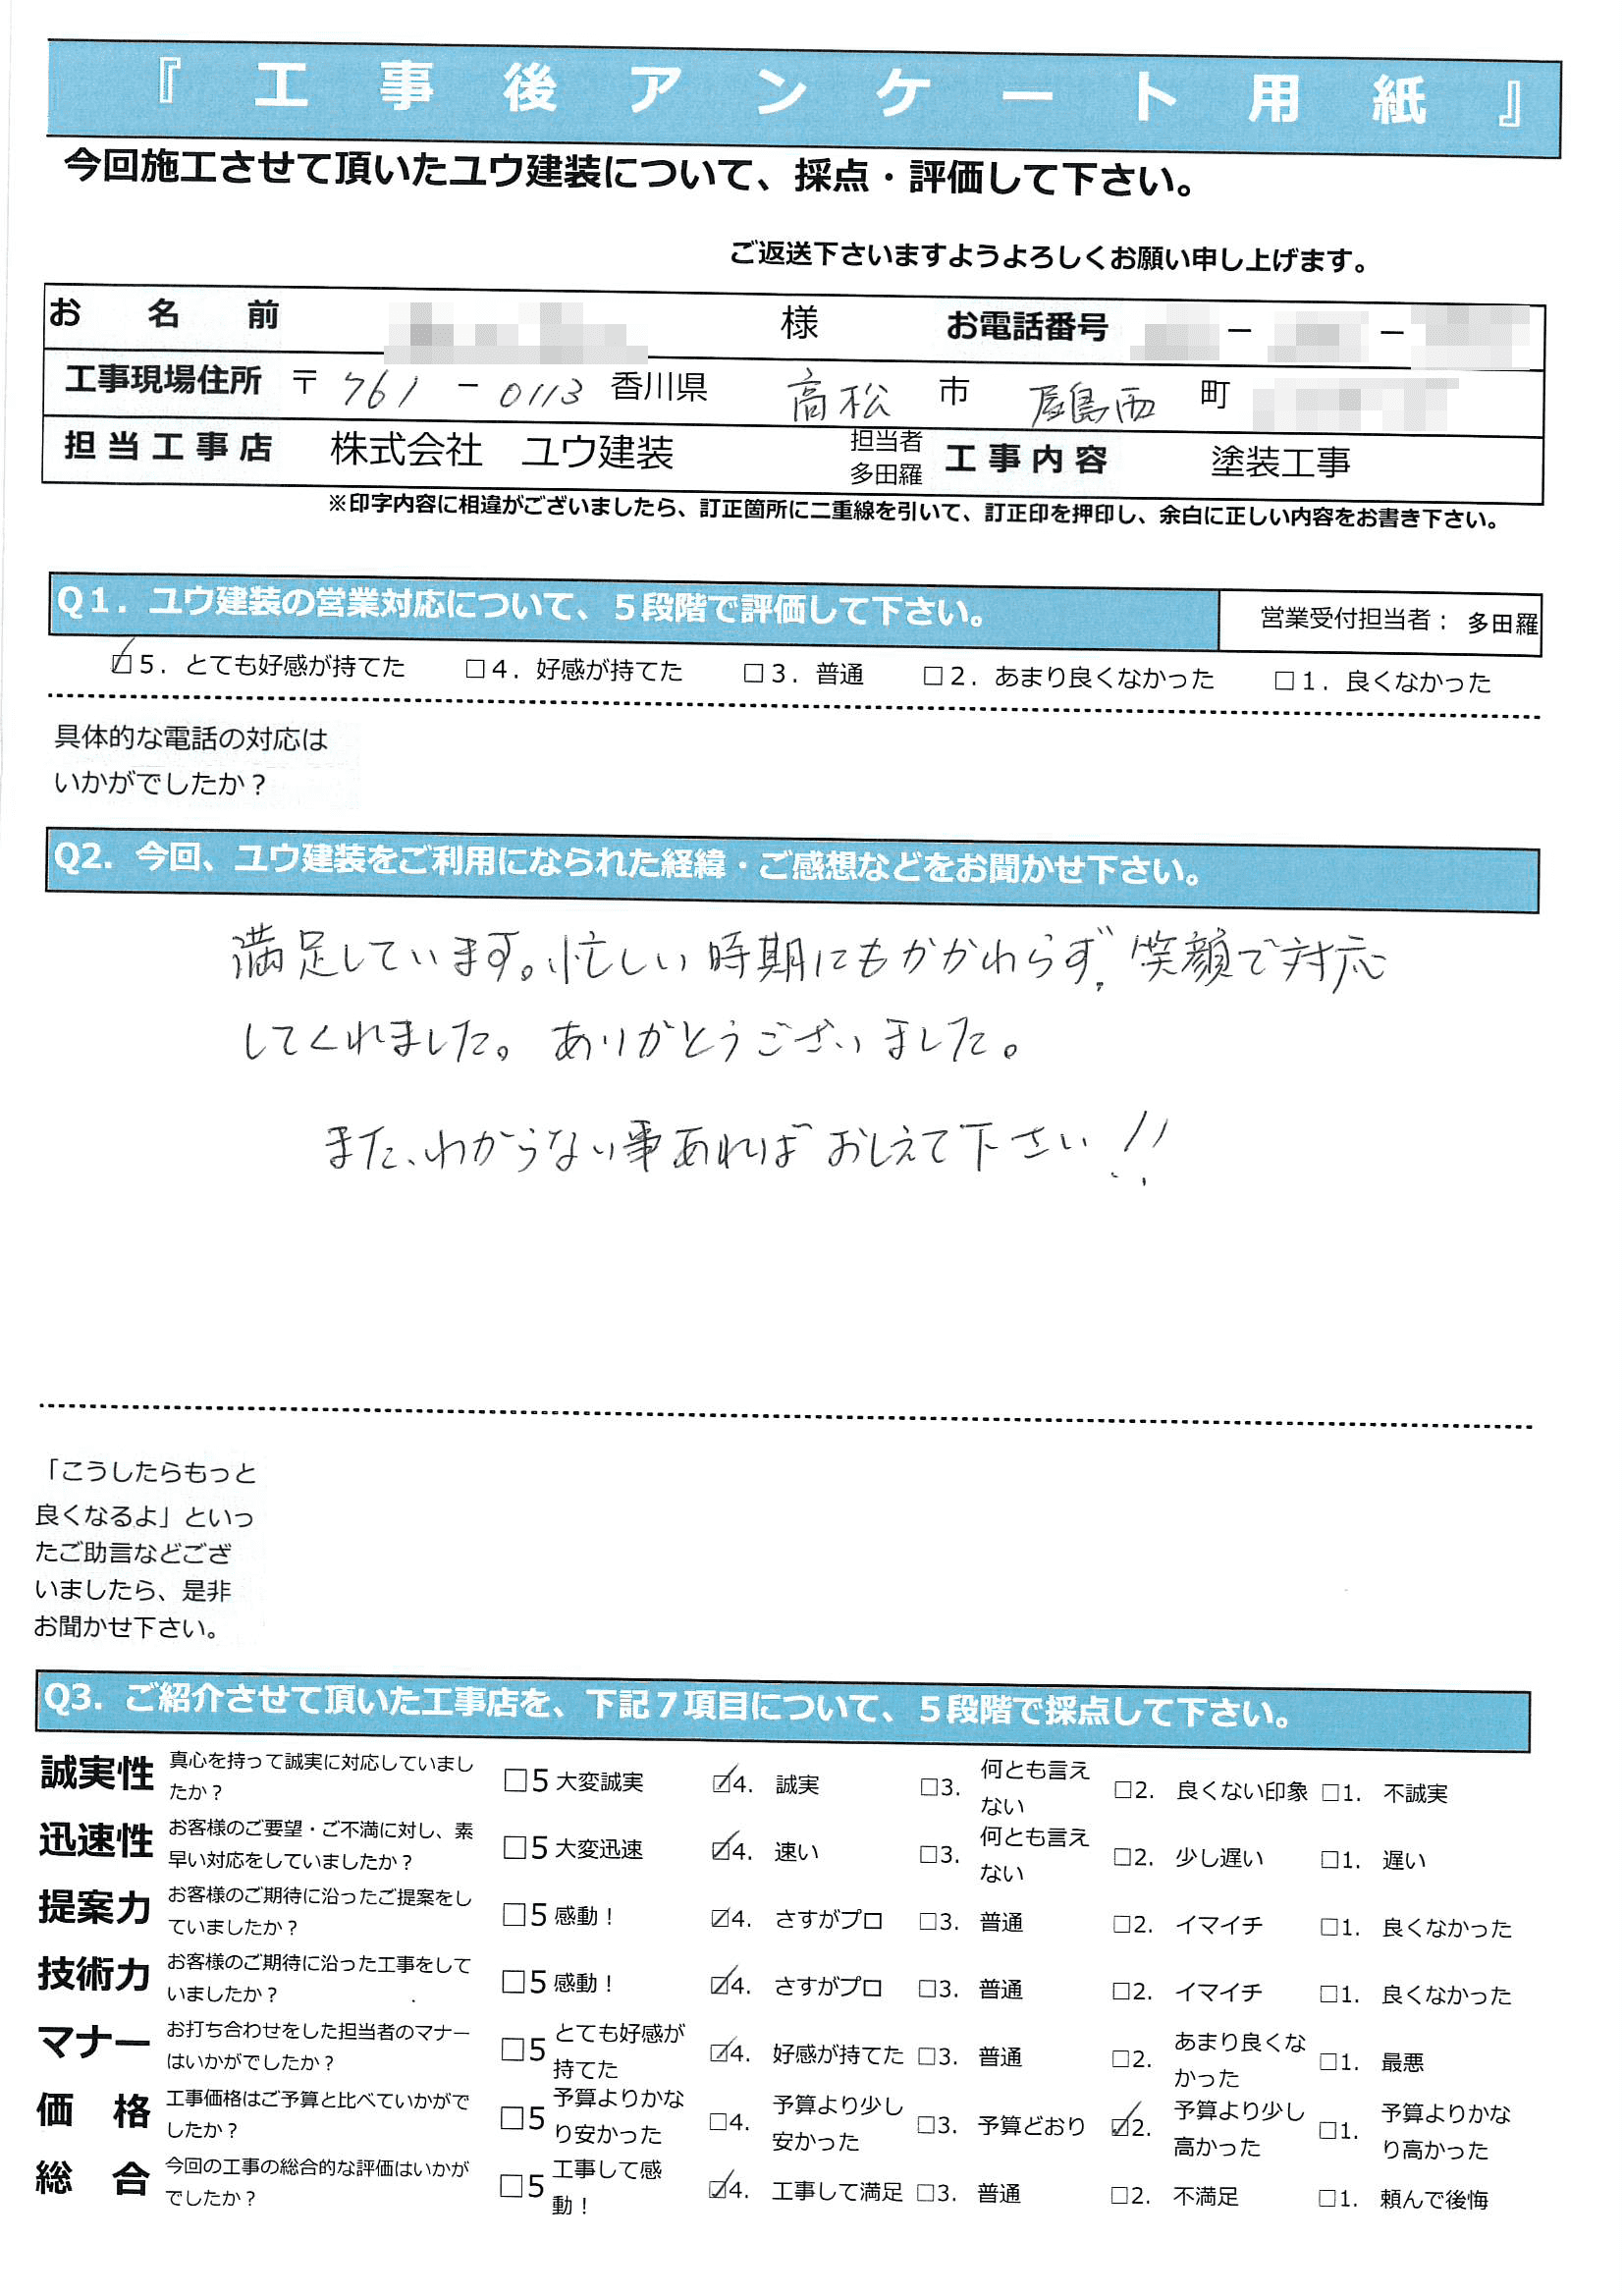 『工事後アンケート用紙』
今回施工させて頂いたユウ建装について、採点・評価して下さい。
ご返送下さいますようよろしくお願い申し上げます。
お名前 様 お電話番号 － －
工事現場住所 〒761－0113 香川県 高松 市 屋島西 町
担当工事店 株式会社 ユウ建装 担当者 多田羅 工事内容 塗装工事
※印字内容に相違がございましたら、訂正箇所に二重線を引いて、訂正印を押印し、余白に正しい内容をお書き下さい。
Q1．ユウ建装の営業対応について、５段階で評価して下さい。 営業受付担当者：多田羅
☑5．とても好感が持てた □4．好感が持てた □3．普通 □2．あまり良くなかった □1．良くなかった
具体的な電話の対応は
いかがでしたか？
Q2．今回、ユウ建装をご利用になられた経緯・ご感想などをお聞かせ下さい。
満足しています。忙しい時期にもかかわらず、笑顔で対応
してくれました。ありがとうございました。
また、わからない事あればおしえて下さい!!
「こうしたらもっと
良くなるよ」といっ
たご助言などござ
いましたら、是非
お聞かせ下さい。
Q3．ご紹介させて頂いた工事店を、下記７項目について、５段階で採点して下さい。
誠実性 真心を持って誠実に対応していましたか？ □5 大変誠実 ☑4. 誠実 □3. 何とも言えない □2. 良くない印象 □1. 不誠実
迅速性 お客様のご要望・ご不満に対し、素早い対応をしていましたか？ □5 大変迅速 ☑4. 速い □3. 何とも言えない □2. 少し遅い □1. 遅い
提案力 お客様のご期待に沿ったご提案をしていましたか？ □5 感動！ ☑4. さすがプロ □3. 普通 □2. イマイチ □1. 良くなかった
技術力 お客様のご期待に沿った工事をしていましたか？ □5 感動！ ☑4. さすがプロ □3. 普通 □2. イマイチ □1. 良くなかった
マナー お打ち合わせをした担当者のマナーはいかがでしたか？ □5 とても好感が持てた ☑4. 好感が持てた □3. 普通 □2. あまり良くなかった □1. 最悪
価格 工事価格はご予算と比べていかがでしたか？ □5 予算よりかなり安かった □4. 予算より少し安かった □3. 予算どおり ☑2. 予算より少し高かった □1. 予算よりかなり高かった
総合 今回の工事の総合的な評価はいかがでしたか？ □5 工事して感動！ ☑4. 工事して満足 □3. 普通 □2. 不満足 □1. 頼んで後悔